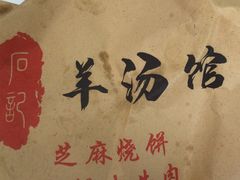 石記
羊汤馆
芝麻烧饼
牛肉